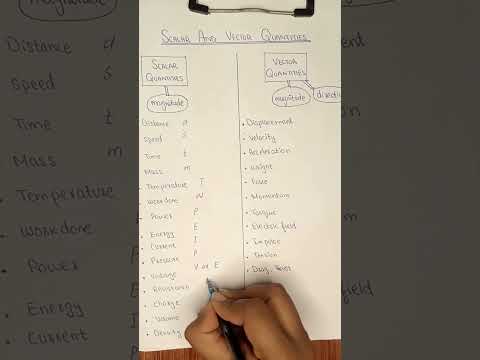 SCALAR AND VECTOR QUANTITIES
SCALAR
QUANTITIES
magnitude
Distance d
Speed s
Time t
Mass m
Temperature T
Workdone W
Power P
Energy E
Current I
Pressure P
Voltage V or E
Resistance
Charge
Volume
Density
VECTOR
QUANTITIES
magnitude
direction
Displacement
Velocity
Acceleration
Weight
Force
Momentum
Torque
Electric field
Impulse
Tension
Drag Force
magnitude
Distance
Speed
Time
Mass
Temperature
Workdone
Power
Energy
Current
d
s
t
m
T
W
P
E
I